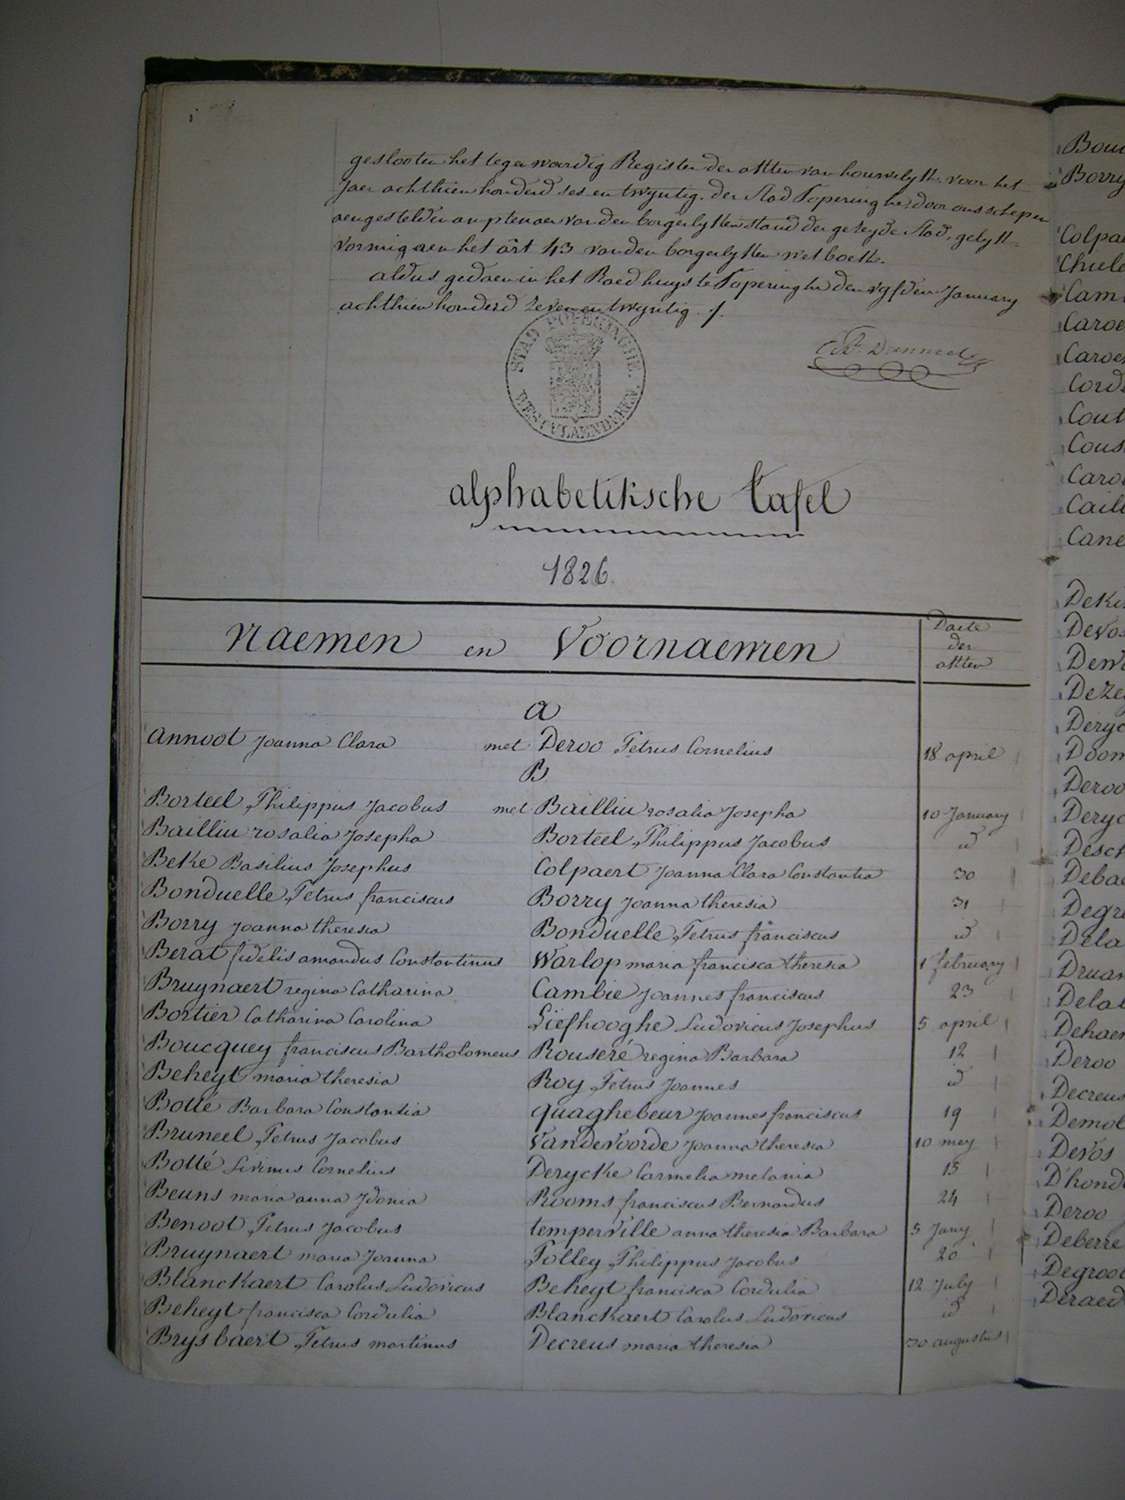 geslooten het tegenwoordig Register der akten van houwelyk voor het
Jaer achthien honderd ses en twyntig der Stad Poperinghe, door ons schepen
aengestelden amptenaer van den borgerlyken stand der geseyde stad, gelyk-
vormig aen het art 43 van den borgerlyken wetboek.
aldus gedaen in het Raedhuys te Poperinghe den vyfden January
achthien honderd zeven en twyntig ./.
STAD POPERINGHE.
WESTVLAENDEREN
alphabetiksche tafel
1826.
Naemen en Voornaemen
Daete
der
akten
a
Annoot Joanna Clara met Deroo Petrus Cornelius 18 april
B
Borteel Philippus Jacobus met Bailliu rosalia Josepha 10 January
Bailliu rosalia Josepha Borteel Philippus Jacobus id
Beke Basilius Josephus Colpaert Joanna Clara Constantia 30
Bonduelle Petrus franciscus Borry Joanna theresia 31
Borry Joanna theresia Bonduelle Petrus franciscus id
Berat fidelis amandus Constantinus Warlop maria francisca theresia 1 february
Bruynaert regina Catharina Cambie Joannes franciscus 23
Bortier Catharina Carolina Liefhooghe Ludovicus Josephus 5 april
Boucquey franciscus Bartholomeus Rouseré regina Barbara 12
Beheyt maria theresia Roy Petrus Joannes id
Botté Barbara Constantia quaghebeur Joannes franciscus 19
Bruneel Petrus Jacobus Vandevoorde Joanna theresia 10 mey
Botté Livinus Cornelius Derycke Carmelia melania 15
Beuns maria anna Idonia Rooms franciscus Bernardus 24
Benoot Petrus Jacobus temperville anna theresia Barbara 5 Juny
Bruynaert maria Joanna Polley Philippus Jacobus 20
Blanckaert Carolus Ludovicus Beheyt francisca Cordulia 12 July
Beheyt francisca Cordulia Blanckaert Carolus Ludovicus id
Brysbaert Petrus martinus Decreus maria theresia 30 augustus
Borry
Colpa
Cam
Caroe
Caroe
Cord
Cout
Cous
Caro
Caill
Cane
Devos
Deze
Deryc
Doom
Deroo
Deryc
Desch
Debae
Degr
Dela
Druar
Delat
Dehaen
Deroo
Decreus
Demol
Devos
D'hond
Deroo
Deberre
Degroot
Deraed